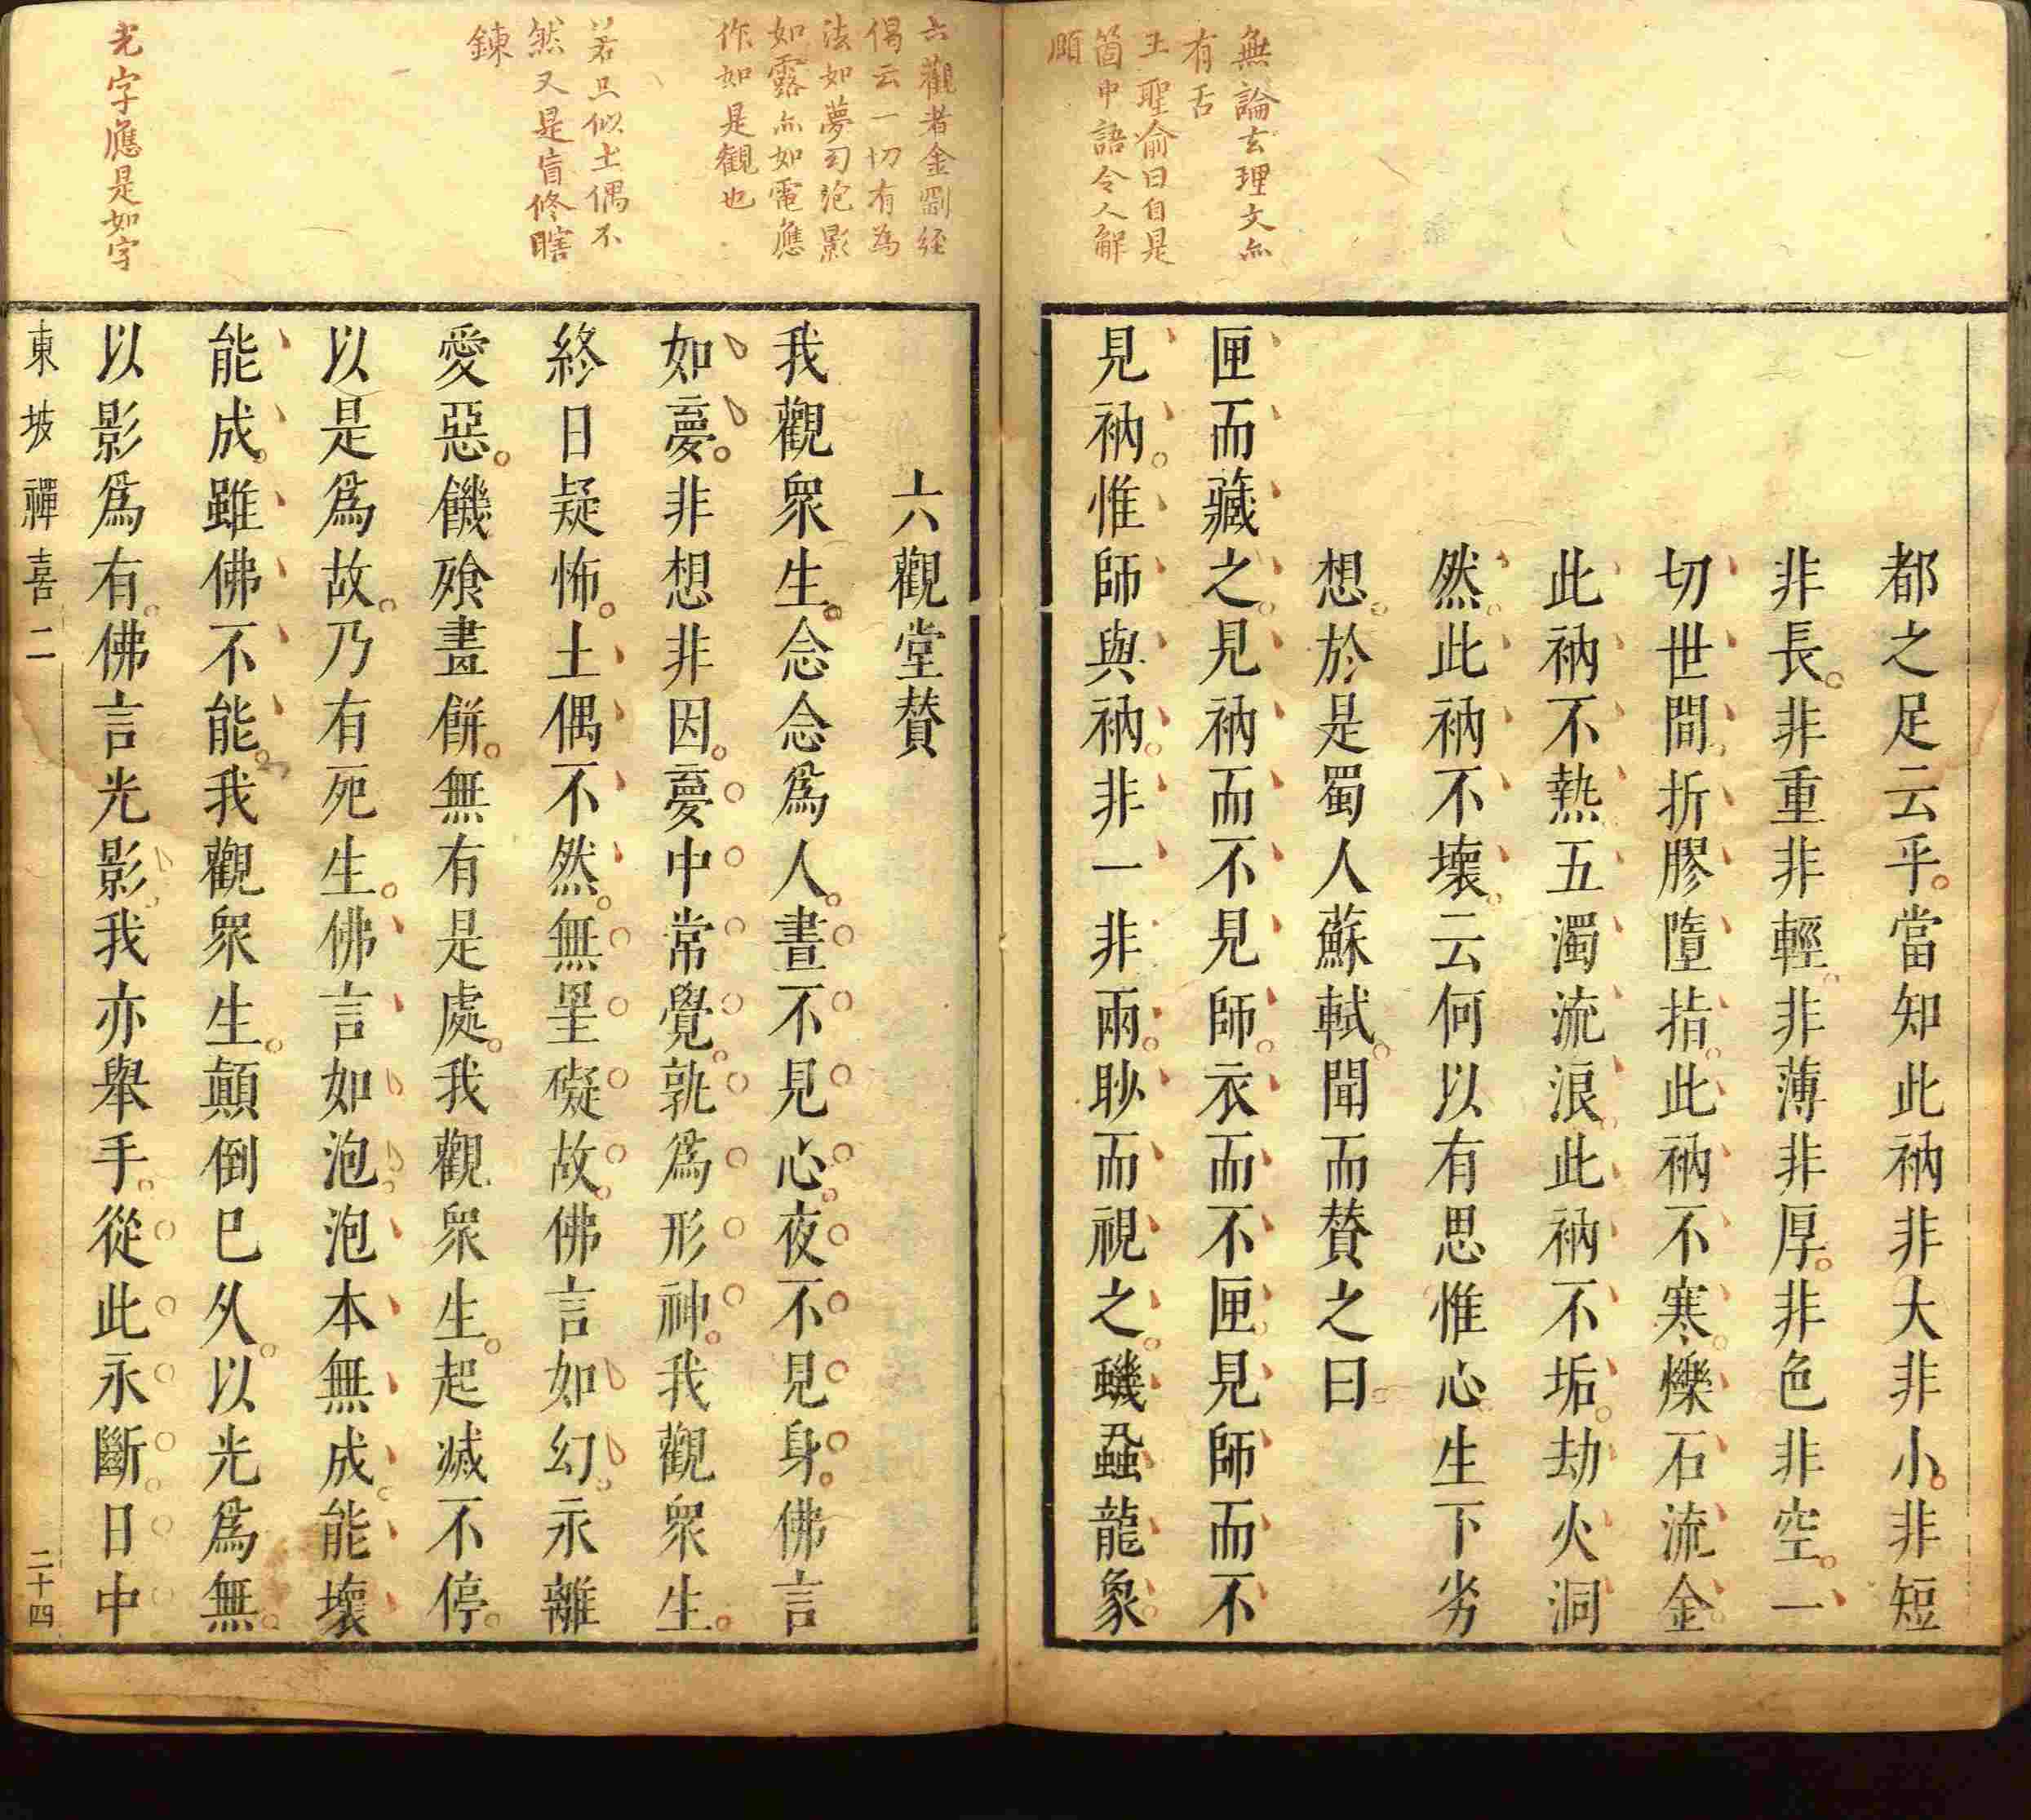 無論玄理文亦
有舌
王聖俞曰自是
箇中語令人解
頤
都之足云乎當知此衲非大非小非短
非長非重非輕非薄非厚非色非空一
切世間折膠墮指此衲不寒爍石流金
此衲不熱五濁流浪此衲不垢劫火洞
然此衲不壞云何以有思惟心生下劣
想於是蜀人蘇軾聞而贊之曰
匣而藏之見衲而不見師衣而不匣見師而不
見衲惟師與衲非一非兩眇而視之蟣蝨龍象
六觀者金剛經
偈云一切有為
法如夢幻泡影
如露亦如電應
作如是觀也
若只似土偶不
然又是盲修瞎
鍊
光字應是如字
六觀堂贊
我觀眾生念念爲人晝不見心夜不見身佛言
如夢非想非因夢中常覺孰爲形神我觀眾生
終日疑怖土偶不然無罣礙故佛言如幻永離
愛惡饑飱畫餅無有是處我觀眾生起滅不停
以是爲故乃有死生佛言如泡泡本無成能壞
能成雖佛不能我觀眾生顛倒巳久以光爲無
以影爲有佛言光影我亦舉手從此永斷日中
東坡禪喜二
二十四